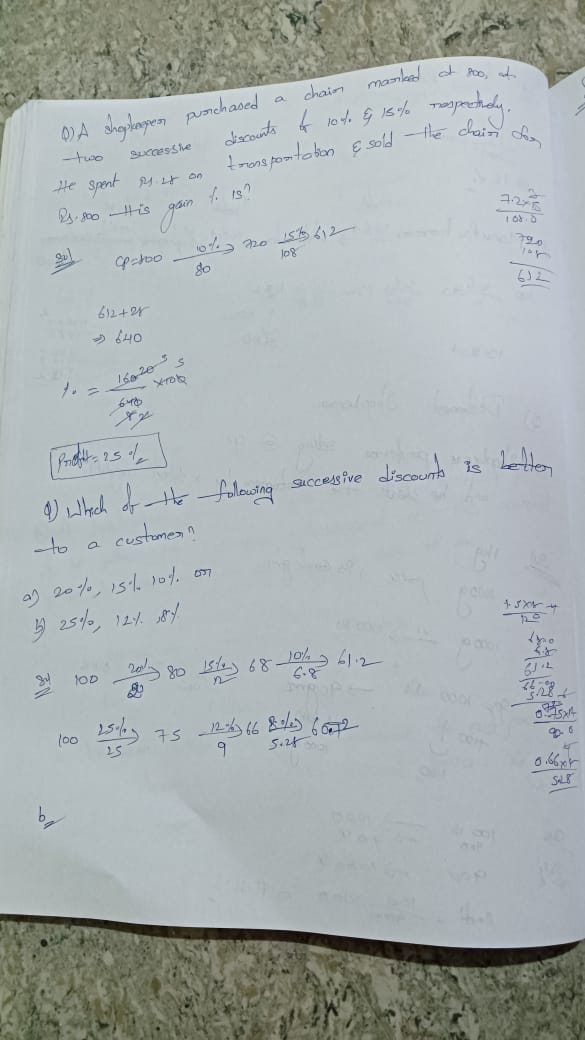 Q) A shopkeeper purchased a chair marked at 800, at
two successive discounts of 10% & 15% respectively.
He spent Rs.28 on transportation & sold the chair for
Rs.800 His gain % is?
Sol CP=800 10%→ 720 15%→ 612
80 108
7.2×15
108.0
720
108
612
612+28
⇒ 640
% = 160 ×100
640
Profit = 25%
Q) Which of the following successive discounts is better
to a customer?
a) 20%, 15% 10% or
b) 25%, 12% ,8%
Sol 100 20%→ 80 15%→ 68 10%→ 61.2
12 6.8
100 25%→ 75 12%→ 66 8%→ 60.72
25 9 5.28
61.2
0.66×8
528
b